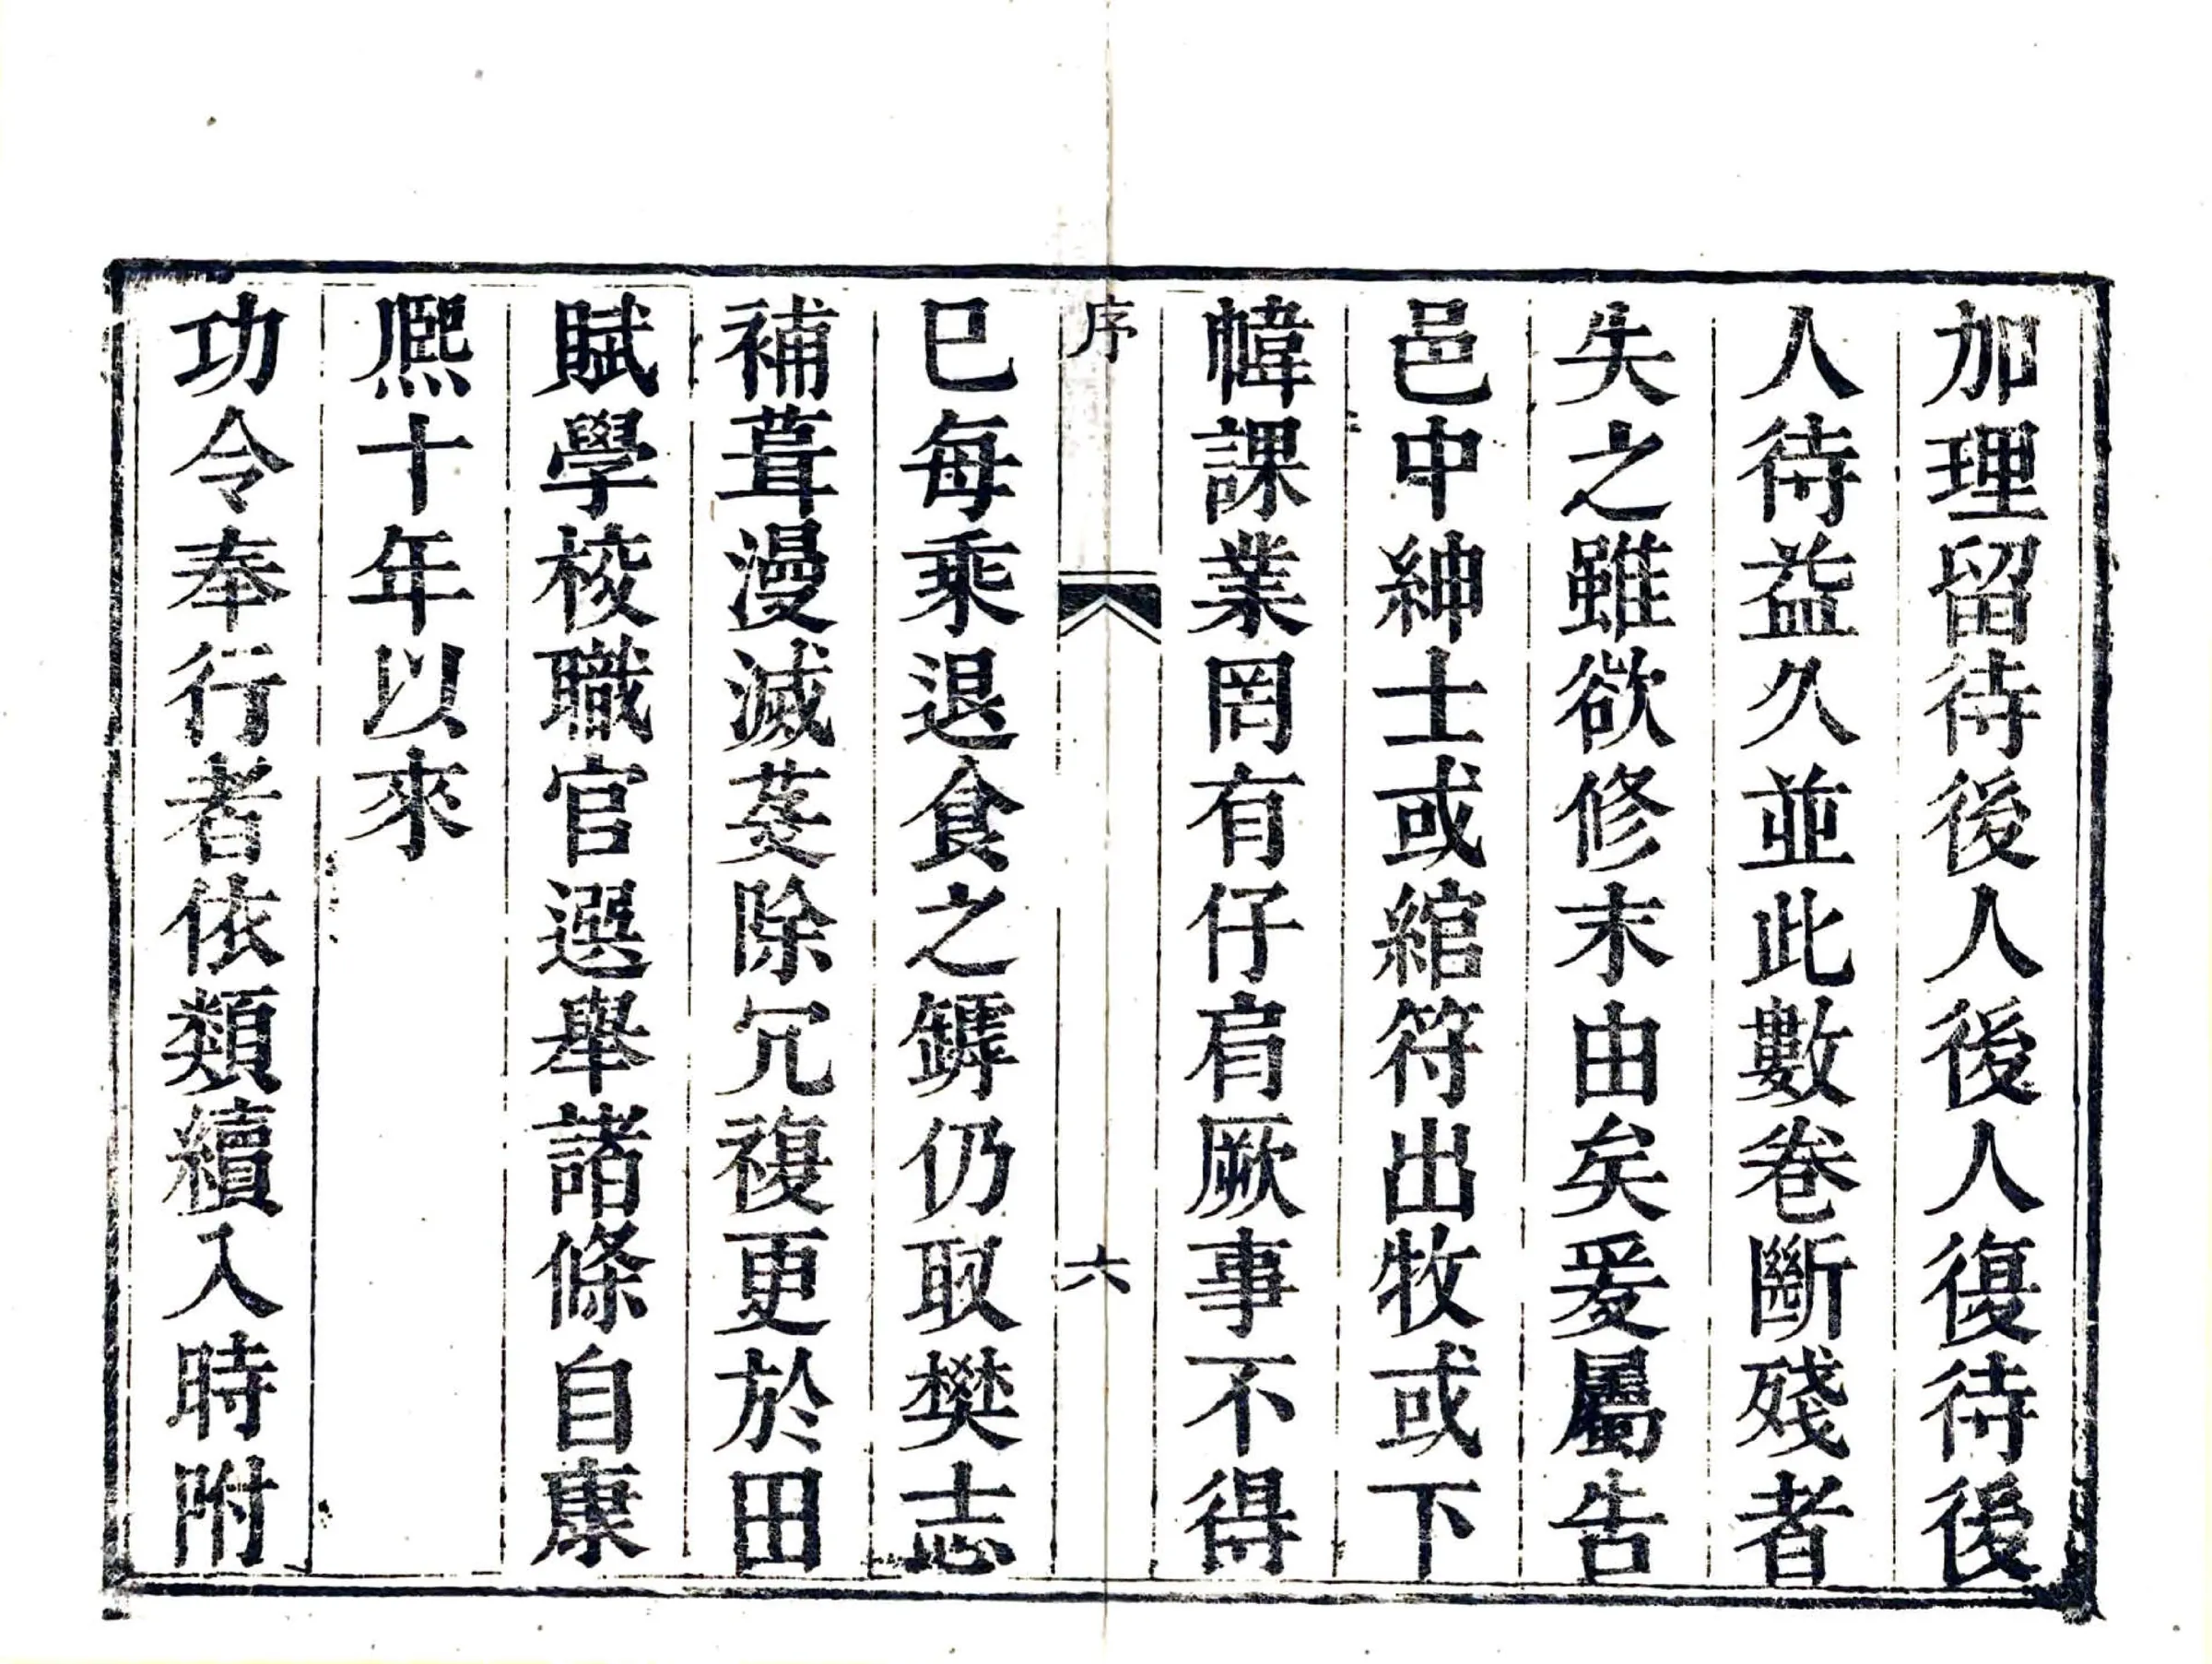 加理留待後人後人復待後
人待益久並此數卷斷殘者
失之雖欲修末由矣爰屬告
邑中紳士或綰符出牧或下
幃課業罔有仔肩厥事不得
序
六
已每乘退食之罅仍取樊志
補葺漫滅芟除冗複更於田
賦學校職官選舉諸條自康
熈十年以來
功令奉行者依類續入時附